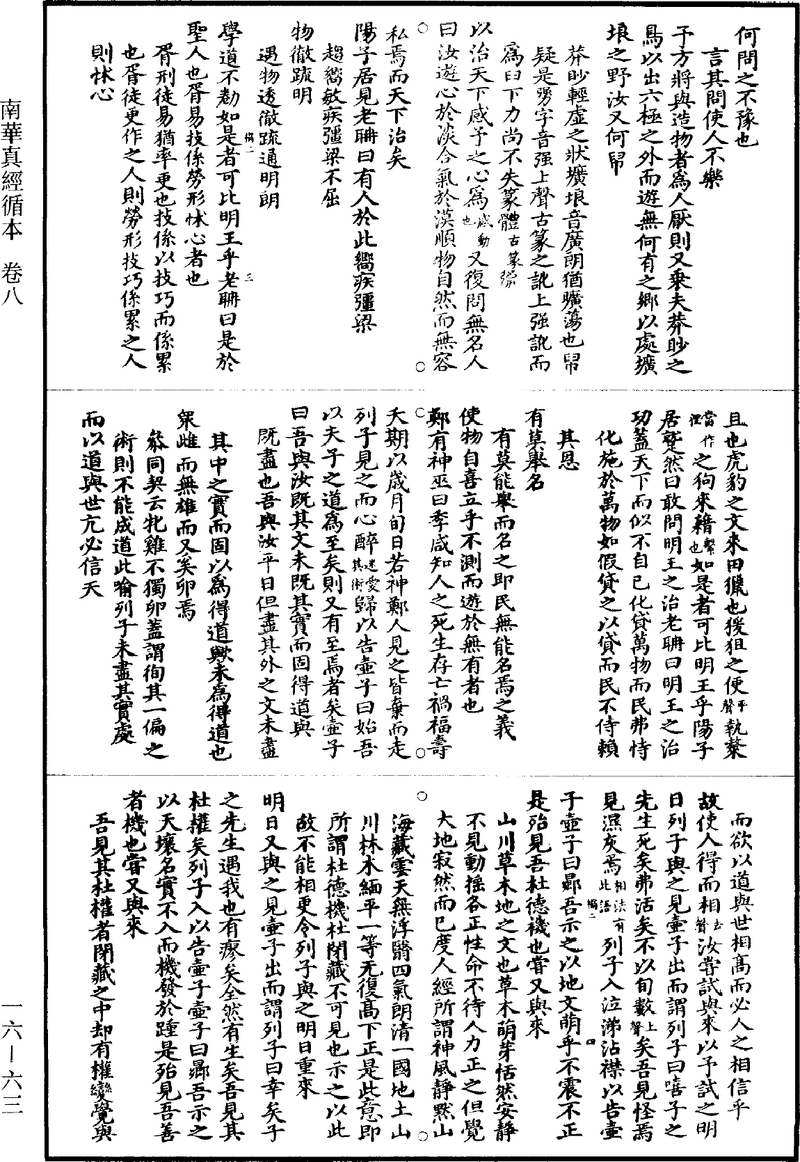 南華真經循本　卷八
一六—六三
何問之不豫也
言其問使人不樂
予方將與造物者爲人厭則又乗夫莽眇之
鳥以出六極之外而遊無何有之鄉以處壙
埌之野汝又何帠
莽眇輕虛之狀壙埌音廣朗猶曠蕩也帠
疑是臱字音强上聲古篆之訛上强訛而
爲臼下力尚不失篆體古篆
以治天下感予之心爲感動也又復問無名人
曰汝遊心於淡合氣於漠順物自然而無容
私焉而天下治矣
陽子居見老聃曰有人於此嚮疾彊梁
趨嚮敏疾彊梁不屈
物徹疏明
遇物透徹疏通明朗
學道不勌如是者可比明王乎老聃曰是於
聖人也胥易技係勞形怵心者也
胥刑徒易猶率更也技係以技巧而係累
也胥徒更作之人則勞形技巧係累之人
則怵心
且也虎豹之文來田獵也猨狙之便平聲執斄
當作狸之狗來藉繫也如是者可比明王乎陽子
居蹵然曰敢問明王之治老聃曰明王之治
功蓋天下而似不自已化貸萬物而民弗恃
化施於萬物如假貸之以貸而民不恃賴
其恩
有莫舉名
有莫能舉而名之即民無能名焉之義
使物自喜立乎不測而遊於無有者也
鄭有神巫曰季咸知人之死生存亡禍福壽
夭期以歲月旬日若神鄭人見之皆棄而走
列子見之而心醉迷愛其術歸以告壺子曰始吾
以夫子之道爲至矣則又有至焉者矣壺子
曰吾與汝既其文未既其實而固得道與
既盡也吾與汝平日但盡其外之文未盡
其中之實而固以爲得道歟未爲得道也
衆雌而無雄而又奚卵焉
叅同契云牝雞不獨卵蓋謂徇其一偏之
術則不能成道此喻列子未盡其實處
而以道與世亢必信夫
而欲以道與世相高而必人之相信乎
故使人得而相去聲汝嘗試與來以予試之明
日列子與之見壺子出而謂列子曰嘻子之
先生死矣弗活矣不以旬數上聲矣吾見怪焉
見濕灰焉相法有此語列子入泣涕沾襟以告壺
子壺子曰曏吾示之以地文萌乎不震不正
是殆見吾杜德機也嘗又與來
山川草木地之文也草木萌芽恬然安靜
不見動摇各正性命不待人力正之但覺
大地寂然而已度人經所謂神風靜默山
海藏雲天無浮翳四氣朗清一國地土山
川林木緬平一等无復高下正是此意即
所謂杜德機杜閉藏不可見也示之以此
故不能相更令列子與之明日重來
明日又與之見壺子出而謂列子曰幸矣子
之先生遇我也有瘳矣全然有生矣吾見其
杜權矣列子入以告壺子壺子曰曏吾示之
以天壤名實不入而機發於踵是殆見吾善
者機也嘗又與來
吾見其杜權者閉藏之中却有權變覺與